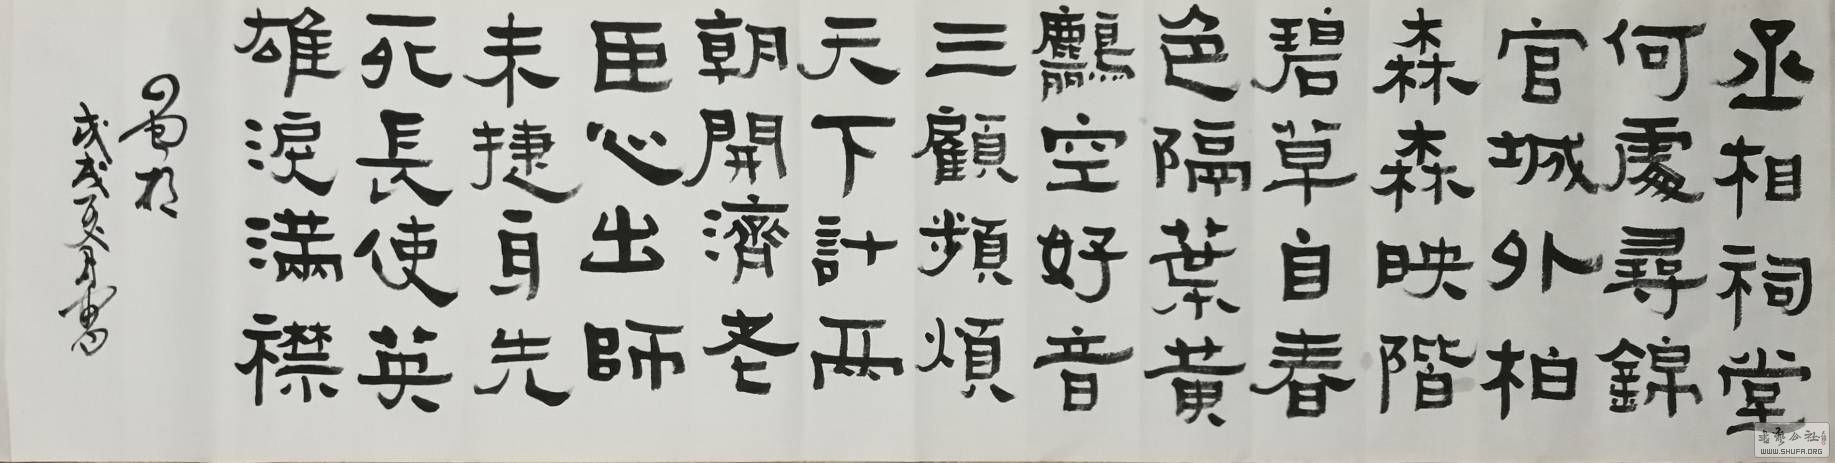 丞相祠堂
何處尋錦
官城外柏
森森映階
碧草自春
色隔葉黃
鸝空好音
三顧頻煩
天下計兩
朝開濟老
臣心出師
未捷身先
死長使英
雄淚滿襟
蜀相
戊戌夏月書
WWW.SHUFA.ORG